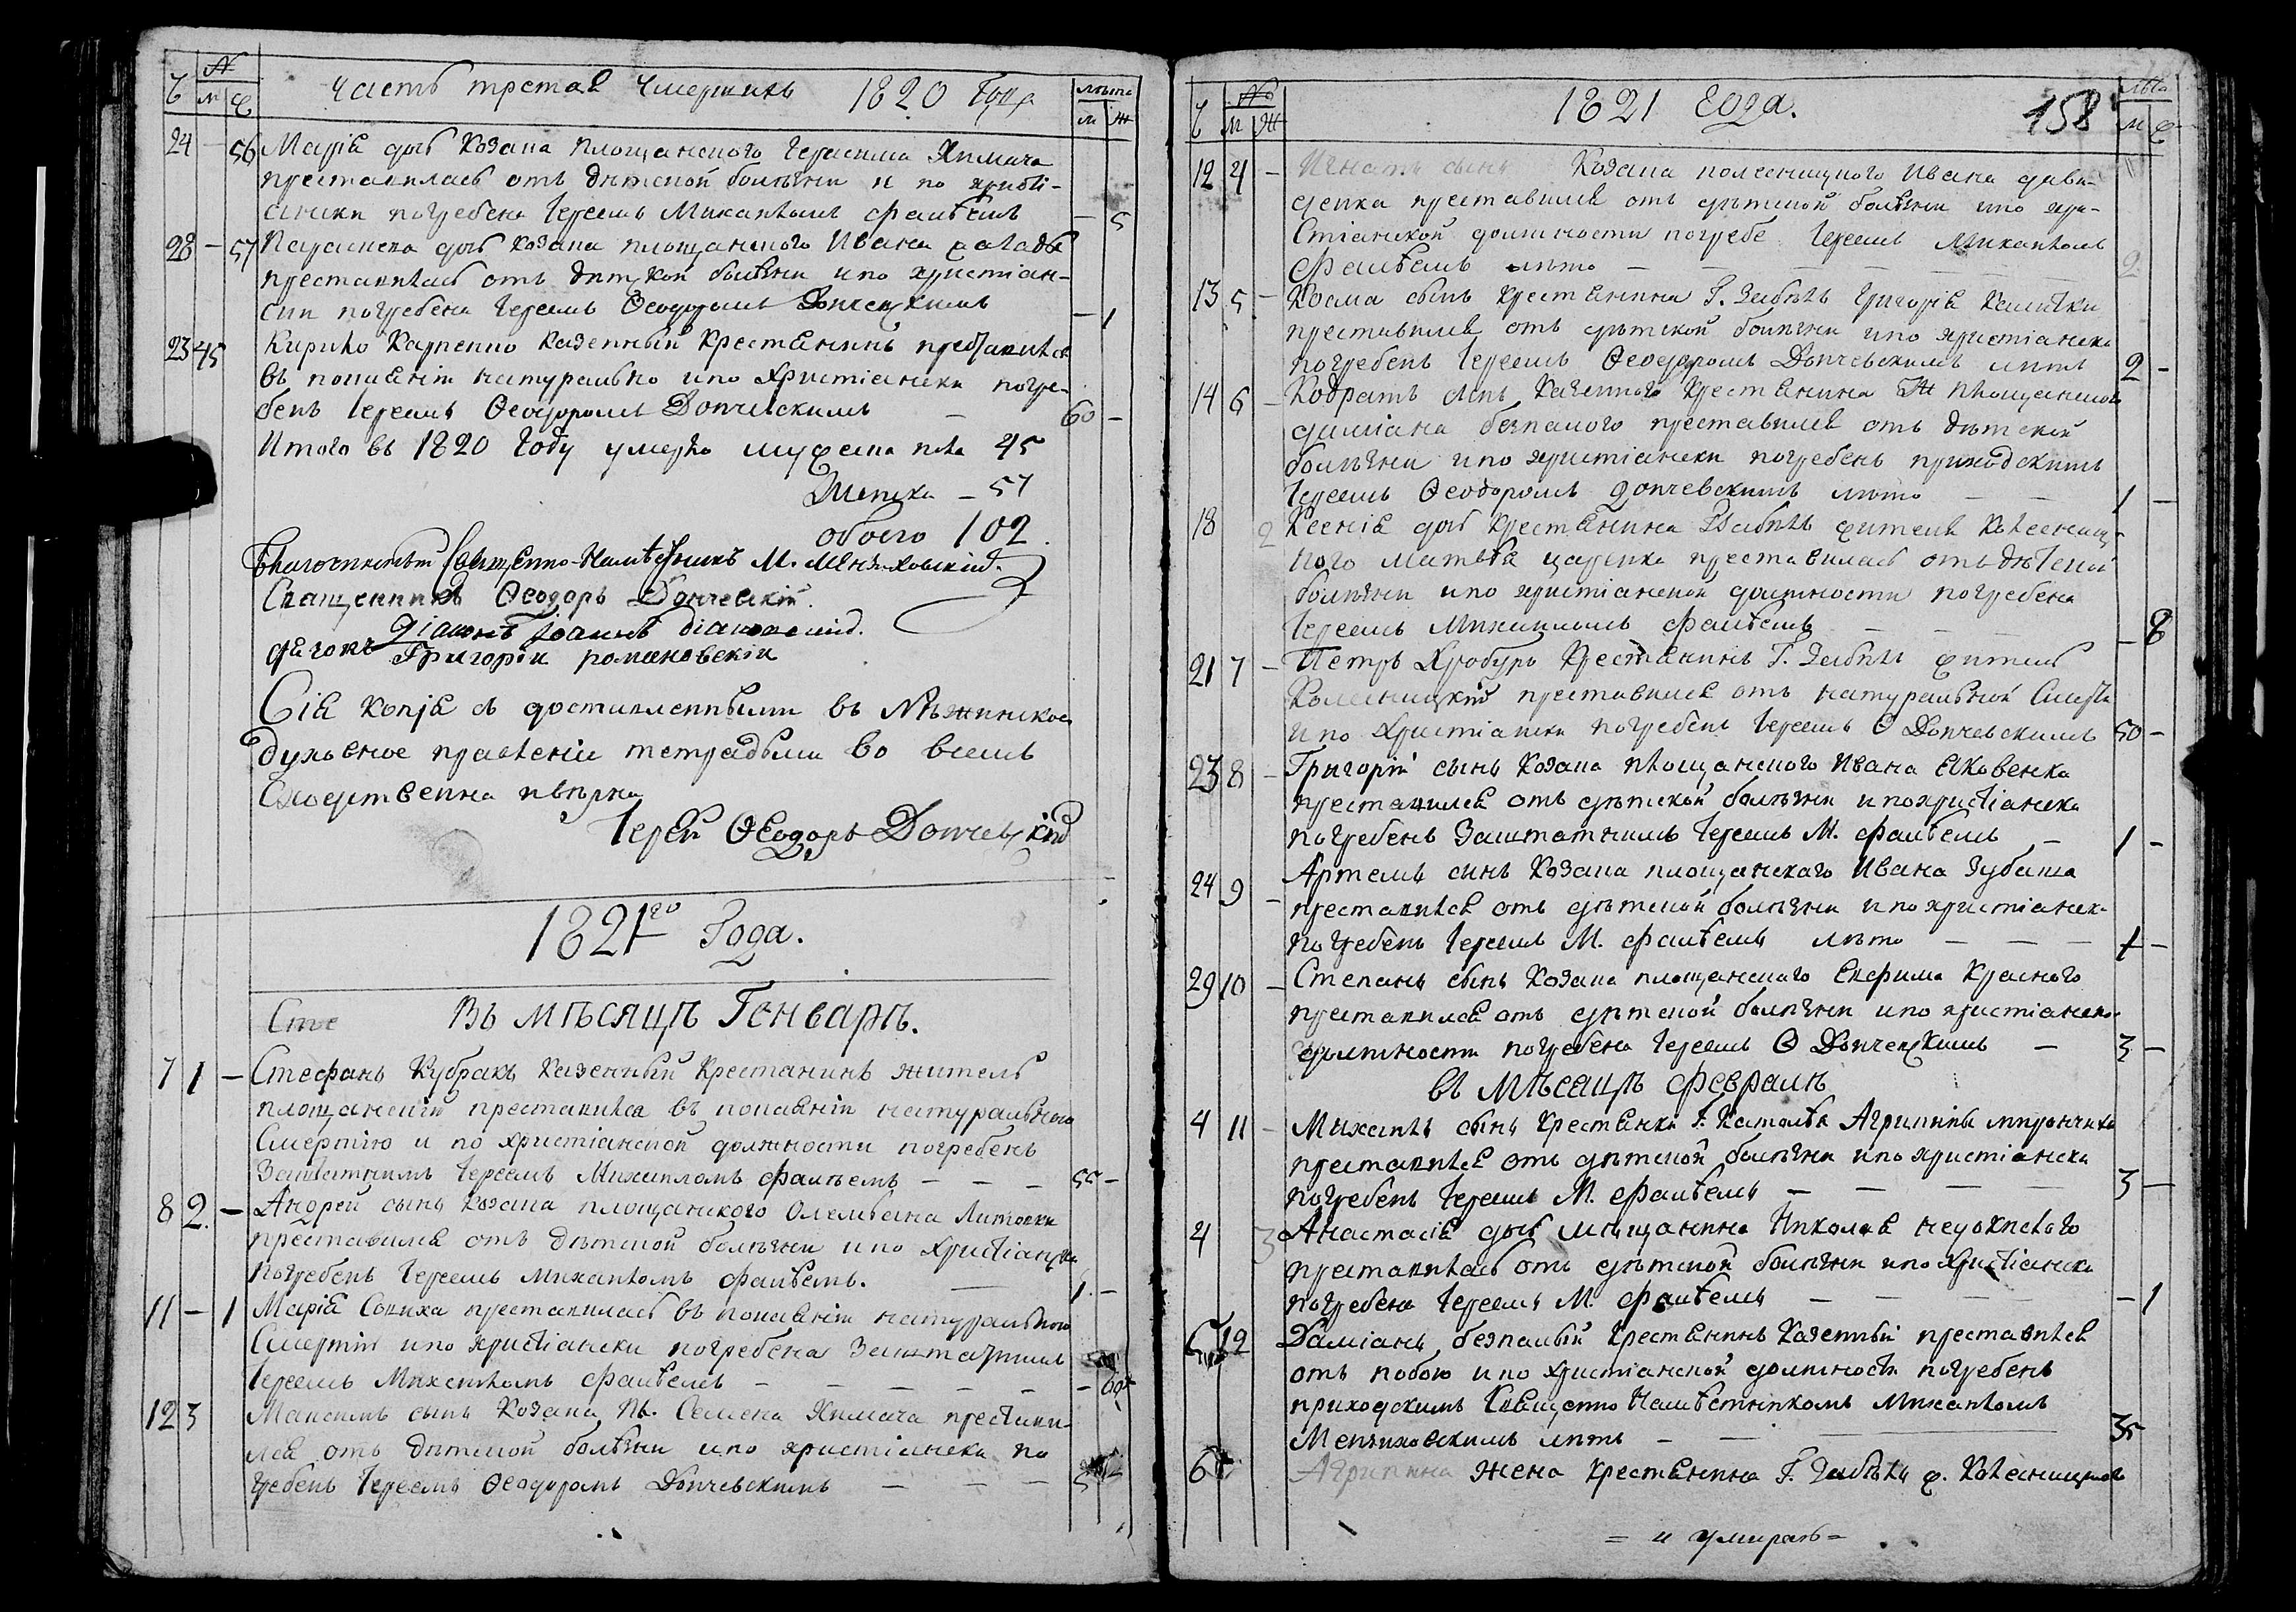 Часть третая Умершихъ 1820 Года
Ч № м ж лѣта м ж
24 – 56 Марія дочь Козака площанского Герасима Химича
преставилась отъ дѣтской болѣзни и по христі-
ански погребена Іереемъ Михаиломъ – 5
28 – 57 Параскева дочь козака площанского Ивана
преставилась отъ дѣтской болѣзни и по христіан-
ски погребена Іереемъ Ѳеодоромъ Дончевскимъ – 1
23 45 Кирило Карпенко Казенный Крестянинъ преставился
въ покаяніи натурально и по Христіански погре-
бенъ Іереемъ Ѳеодоромъ Дончевскимъ – 60 –
Итого въ 1820 Году умерло мужеска пола 45
Женска – 57
обоего 102
Священно-Намѣстникъ М.
Священникъ Ѳеодоръ Дончевскій.
Діаконъ Іоаннъ
дячокъ Григорій романовскій
Сія копія съ доставленными въ Нѣжинское
духовное правленіе тетрадьми во всемъ
сходственна и вѣрна
Іерей Ѳеодоръ Дончевскій
1821го Года.
Сте Въ мѣсяцѣ Генварѣ.
7 1 – Стефанъ Кубракъ Казенный Крестянинъ житель
площанскій преставился въ покаяніи натуральною
Смертію и по христіанской должности погребенъ
Заштатнимъ Іереемъ Михаиломъ – – – 55 –
8 2. – Андрей сынъ козака площанского
преставился отъ дѣтской болѣзни и по Христіански
погребенъ Іереемъ Михаиломъ – 1 –
11 – 1 Марія преставилась въ покаяніи натуральною
Смертію и по христіански погребена Заштатнимъ
Іереемъ Михаиломъ – – – – –
12 3 Максимъ сынъ Козака пл. Семена Химича престави-
лся отъ дѣтской болѣзни и по христіански по
гребенъ Іереемъ Ѳеодоромъ Дончевскимъ – – –
1821 Года. 158
Ч № м ж лѣта м ж
12 4 – Игнатъ сынъ Козака Ивана Дави-
денка преставился отъ дѣтской болѣзни и по хри-
стіанской должности погребе Іереемъ Михаиломъ
лѣто – – – – 2
13 5 – Козма сынъ Крестянина Г. Григорія
преставился отъ дѣтской болѣзни и по христіански
погребенъ Іереемъ Ѳеодоромъ Дончевскимъ лѣтъ 2 –
14 6 – Кодратъ сынъ Казенного Крестянина Ж площанского
даміана безпалого преставился отъ дѣтской
болѣзни и по христіански погребенъ приходскимъ
Іереемъ Ѳеодоромъ Дончевскимъ лѣто – – 1 –
18 2 Ксенія дочь Крестянина жителя
Матвѣя Царенка преставилась отъ дѣтской
болѣзни и по христіанской должности погребена
Іереемъ Михаиломъ – – – 8
21 7 – Петръ Крестянинъ Г. житель
преставился отъ натуральной Смерти
и по Христіански погребенъ Іереемъ Ѳ Дончевскимъ 50 –
23 8 – Григорій сынъ козака площанского Ивана Яковенка
преставился отъ дѣтской болѣзни и по христіански
погребенъ Заштатнимъ Іереемъ М. – 1 –
24 9 – Артемъ сынъ Козака площанскаго Ивана
преставился отъ дѣтской болѣзни и по христіански
погребенъ Іереемъ М. лѣто – – – 1 –
29 10 – Степанъ сынъ Козака площанского Ефима Красного
преставился отъ дѣтской болѣзни и по христіанской
должности погребенъ Іереемъ Ѳ Дончевскимъ – 3 –
въ мѣсяцѣ февралѣ
4 11 – Михаилъ сынъ Крестянки Г. Агрипины
преставился отъ дѣтской болѣзни и по христіански
погребенъ Іереемъ М. – – – – 3 –
4 3 Анастасія дочь мѣщанина Николая
преставилась отъ дѣтской болѣзни и по Христіански
погребена Іереемъ М. – – – – 1
12 Даміанъ безпалый Крестянинъ Казенный преставился
отъ побою и по христіанской должности погребенъ
приходскимъ Священно Намѣстникомъ Михаиломъ
лѣтъ – – 35
6 Агрипина жена Крестянина Г.
= и умираю =